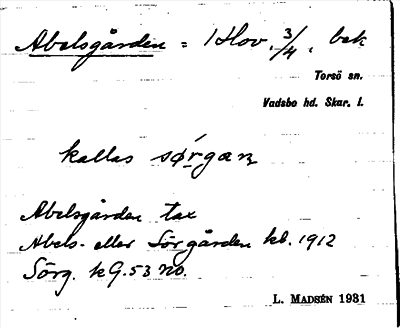 Abelsgården = 1 Hov. 3/4, bek
Torsö sn.
Vadsbo hd. Skar. l.
kallas sǿrgaɲ
Abelsgården tax
Abels- eller Sörgården kb. 1912
Sörg. kG. 53 no.
L. MADSÉN 1931